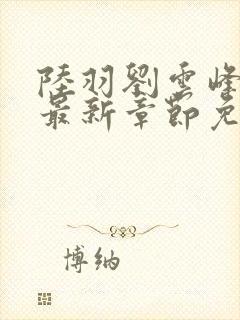 陸羽劉雲峰
最新章節免
博納